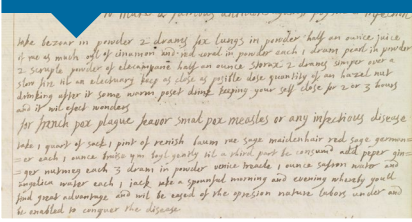 to make a famous
take bezoar in powder 2 drams fox lungs in powder half an ounce juice
of rue as much oyl of cinamon and red coral in powder each 1 dram pearl in powder
2 scruple powder of elecampane half an ounce storax 2 drams simper over a
slow fire til an electuary keep as close as posible dose quantity of an hazel nut
drinking after it some worm poset drink keeping your self close for 2 or 3 hours
and it will efect wonders
for french pox plague feavor smal pox measles or any infectious disease
take 1 quart of sack 1 pint of renish baum rue sage maidenhair red sage german=
=er each 1 ounce bruise ym boyl gently til a third part be consum'd add peper gin=
=ger nutmeg each 3 dram in powder venice treacle 1 ounce safron water and
angelica water each 1 jack take a spoonful morning and evening whereby you'l
find great advantage and wil be eased of the opresion nature labors under and
be enabled to conquer the disease